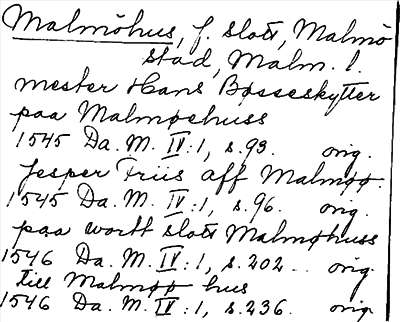 Malmöhus, f. slott, Malmö
stad, Malm. l.
mester Hans Bøsseskytter
paa Malmøehuss
1545 Da. M. IV:1, s.93. orig.
Jesper Friis aff Malmøø.
1545 Da. M. IV:1, s.96. orig.
paa wortt slott Malmøhuss
1546 Da. M. IV:1, s.202.. orig.
till Malmøø hus
1546 Da. M. IV:1, s.236. orig.